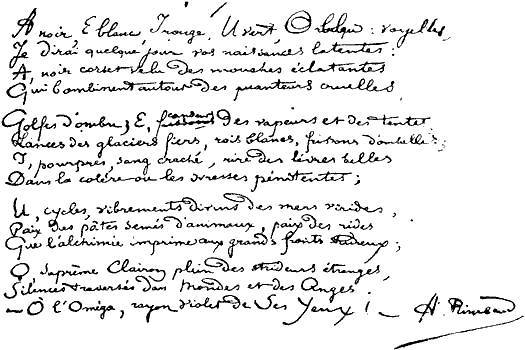 A noir, E blanc, I rouge, U vert, O bleu : voyelles,
Je dirai quelque jour vos naissances latentes :
A, noir corset velu des mouches éclatantes
Qui bombinent autour des puanteurs cruelles,
Golfes d'ombre ; E, candeurs des vapeurs et des tentes
Lances des glaciers fiers, rois blancs, frissons d'ombelles ;
I, pourpres, sang craché, rire des lèvres belles
Dans la colère ou les ivresses pénitentes ;
U, cycles, vibrements divins des mers virides,
Paix des pâtis semés d'animaux, paix des rides
Que l'alchimie imprime aux grands fronts studieux ;
O, Suprême Clairon plein des strideurs étranges,
Silences traversés des Mondes et des Anges :
— O l'Oméga, rayon violet de Ses Yeux ! —
A. Rimbaud